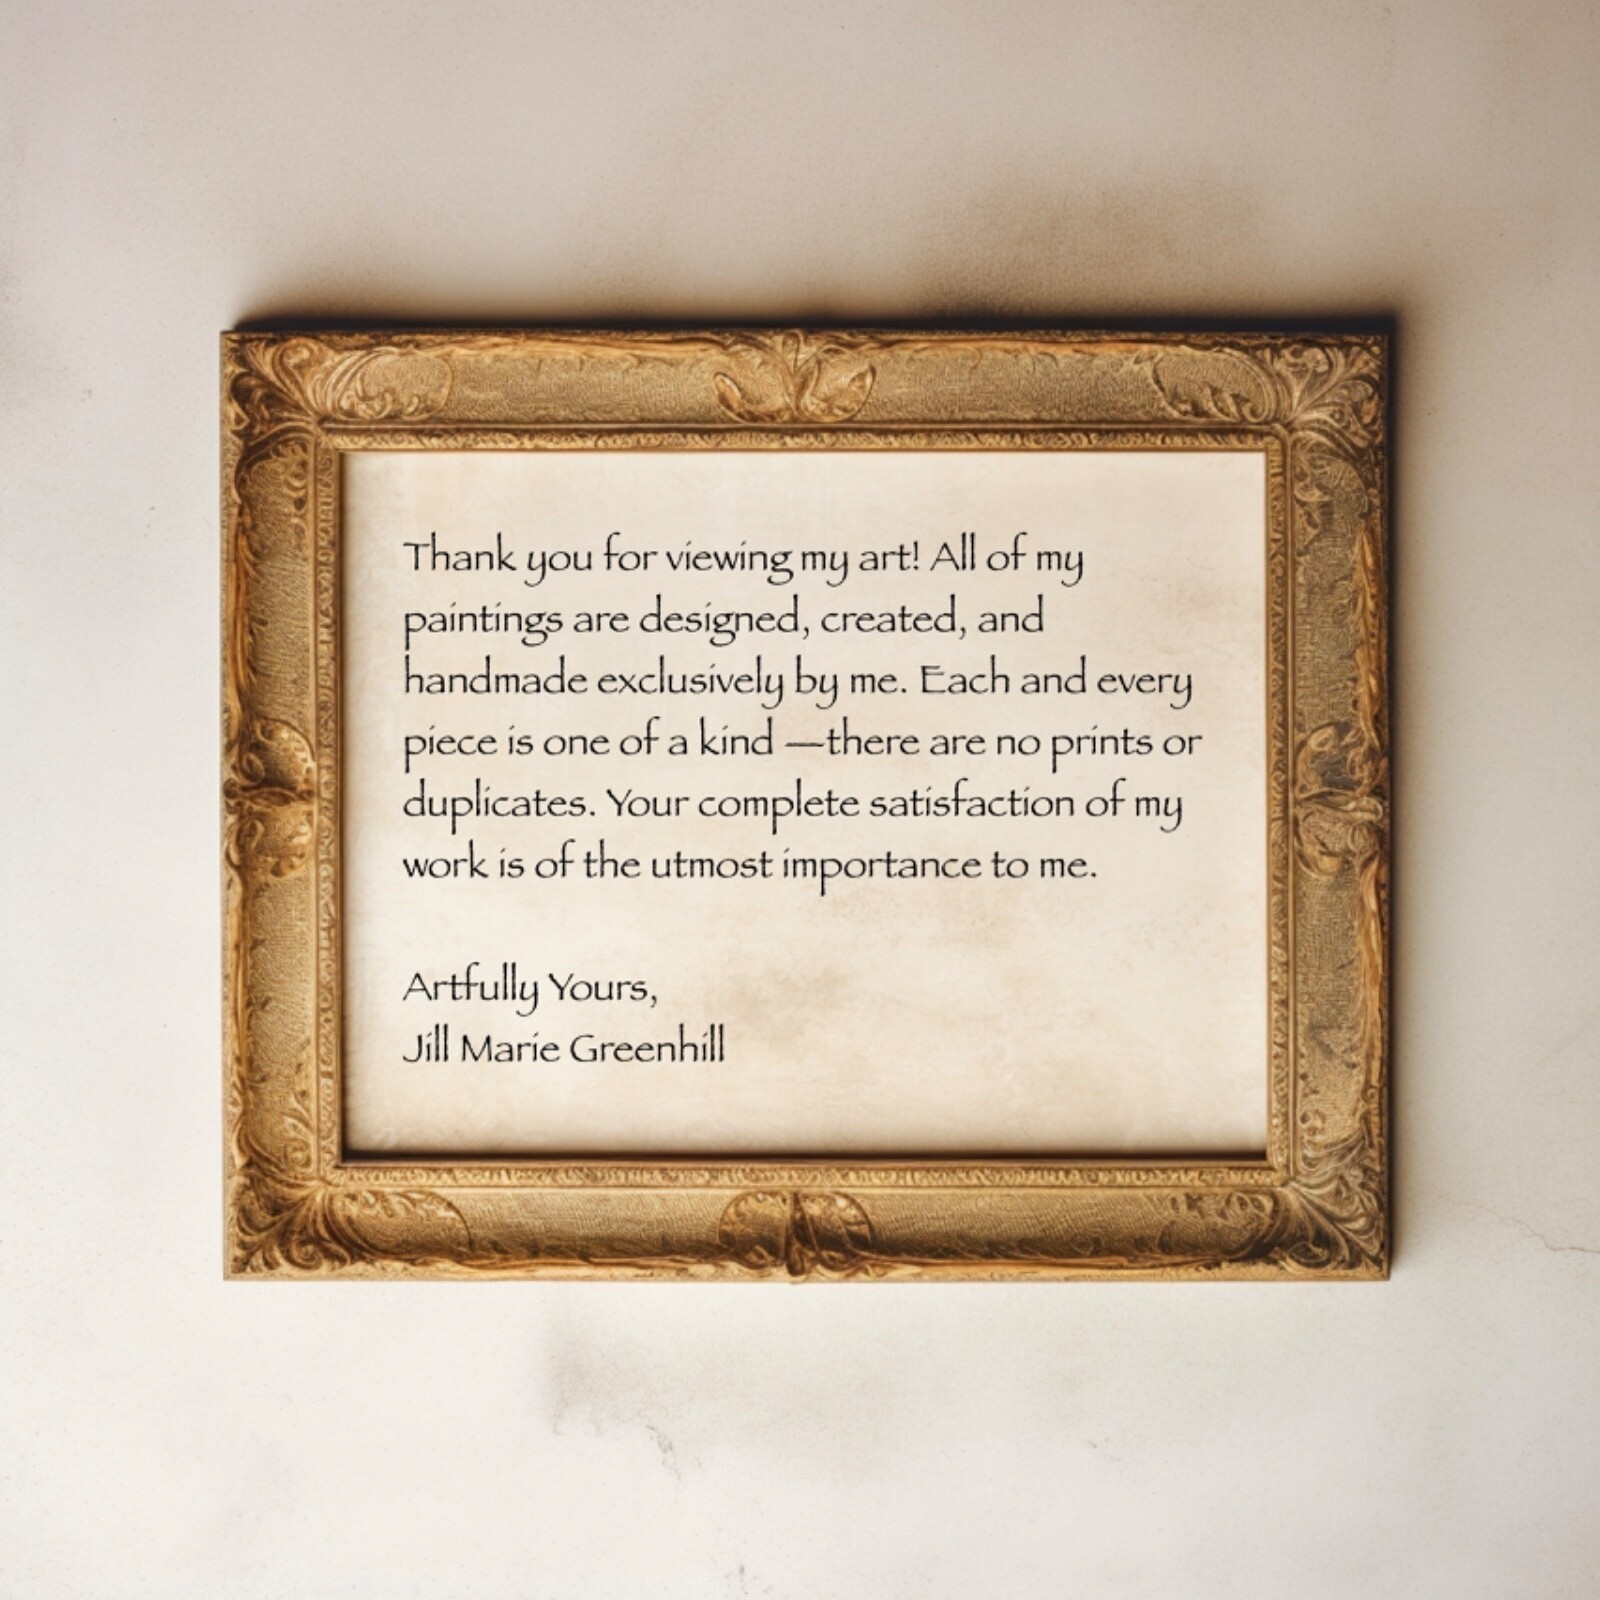 Thank you for viewing my art! All of my
paintings are designed, created, and
handmade exclusively by me. Each and every
piece is one of a kind —there are no prints or
duplicates. Your complete satisfaction of my
work is of the utmost importance to me.
Artfully Yours,
Jill Marie Greenhill